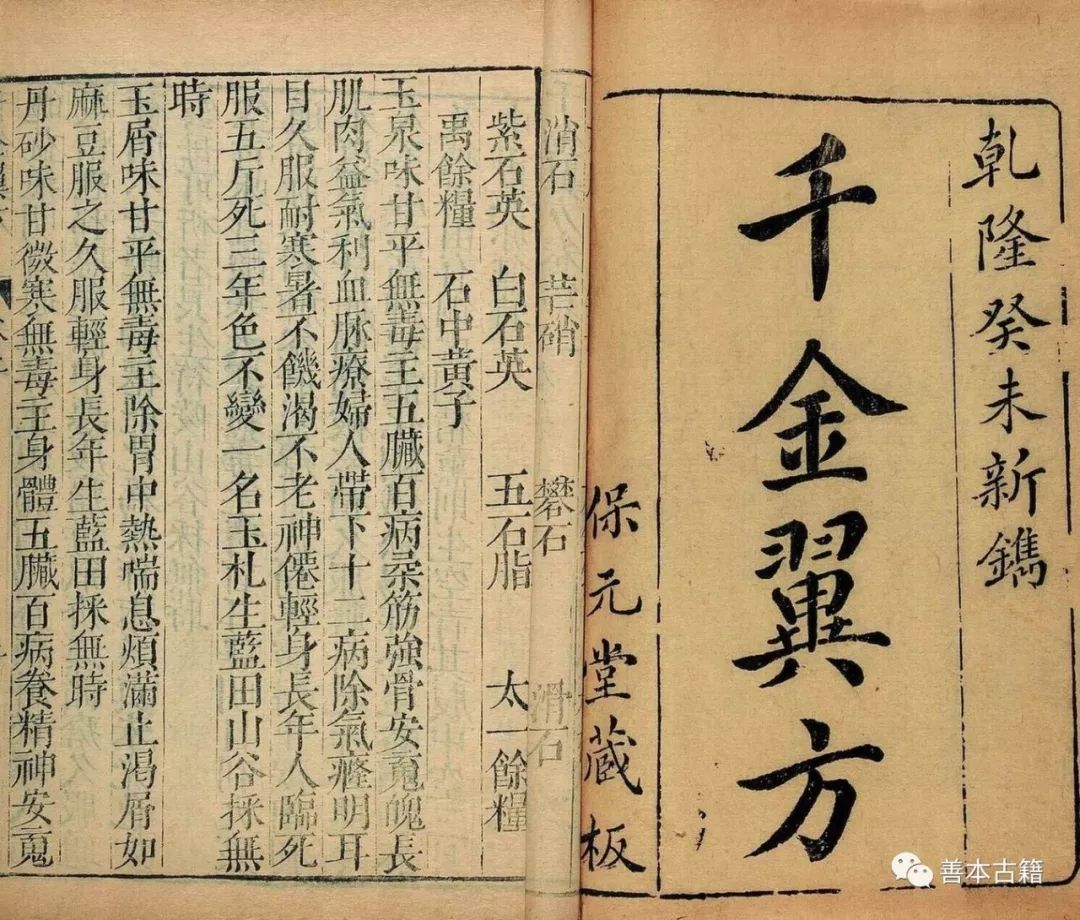 乾隆癸未新鐫
千金翼方
保元堂藏板
消石　芒硝　礬石　滑石
紫石英　白石英　五石脂　太一餘糧
禹餘糧　石中黃子
玉泉味甘平無毒主五臟百病柔筋強骨安䰟魄長
肌肉益氣利血脉療婦人帶下十二病除氣癃明耳
目久服耐寒暑不饑渴不老神僊輕身長年人臨死
服五斤死三年色不變一名玉札生藍田山谷採無
時
玉屑味甘平無毒主除胃中熱喘息煩滿止渴屑如
麻豆服之久服輕身長年生藍田採無時
丹砂味甘微寒無毒主身體五臟百病養精神安䰟
善本古籍